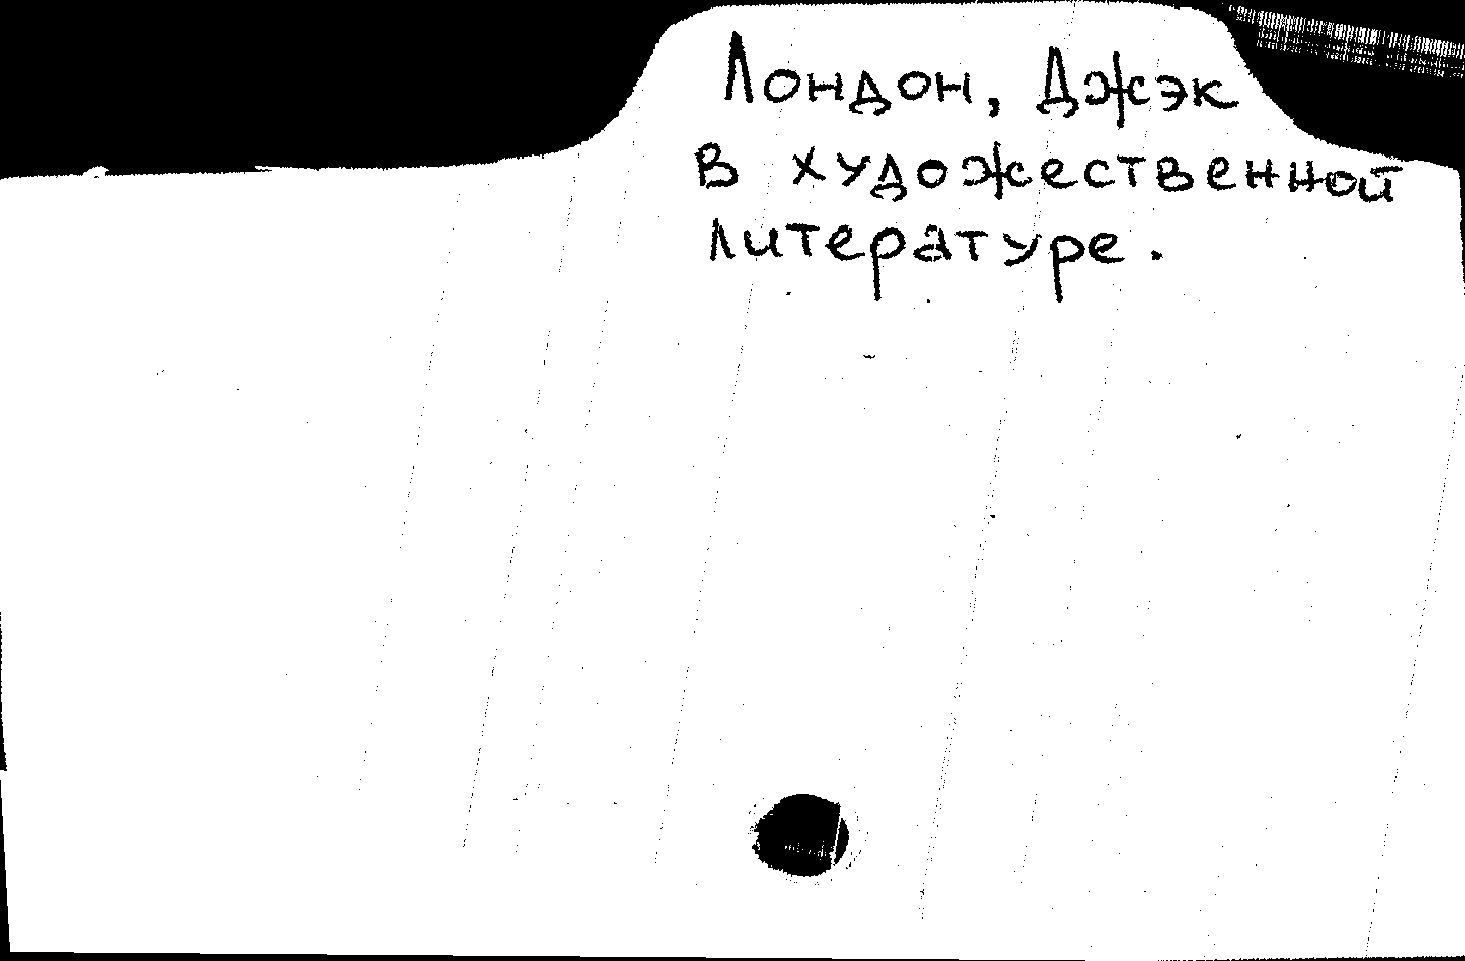 Лондон, Джэк
в художественной
литературе.